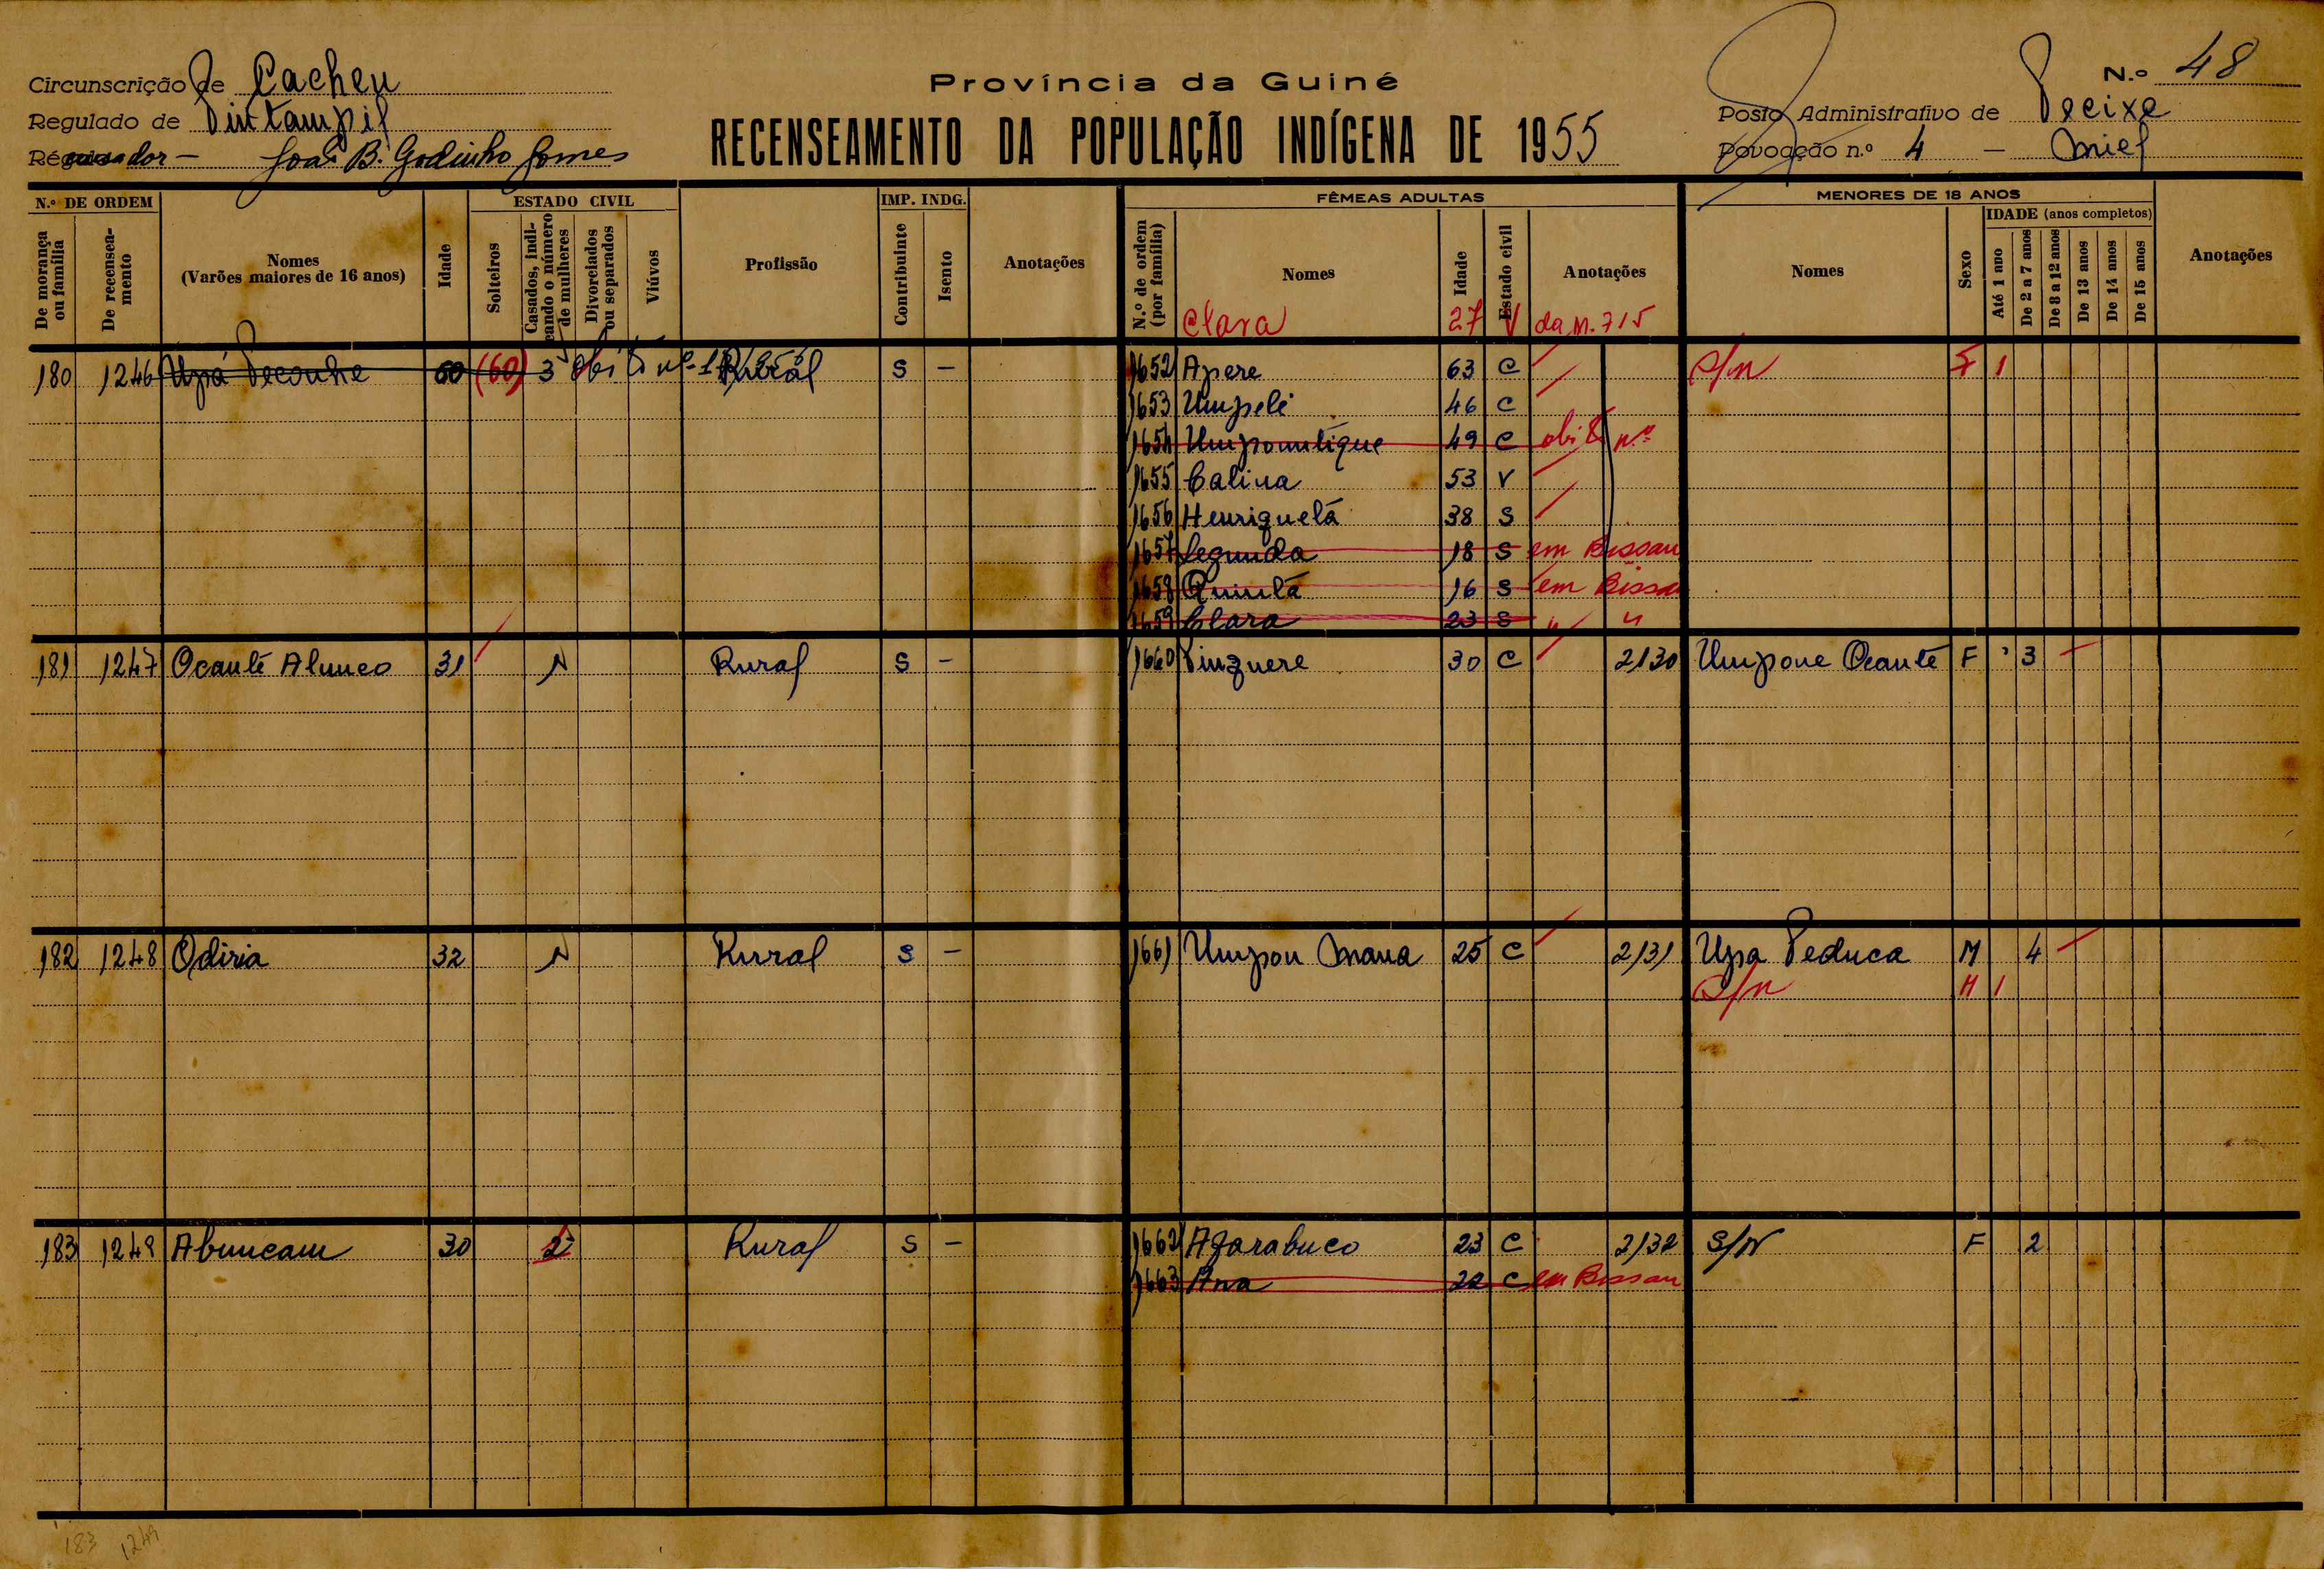 Circunscrição de Cacheu
Província da Guiné
N.º 48
Regulado de Pintampil
Posto Administrativo de Pecixe
RECENSEAMENTO DA POPULAÇÃO INDÍGENA DE 1955
João B. Godinho Gomes
Povoação n.º 4 –
N.º DE ORDEM
De morança ou família
De recensea-mento
Nomes
(Varões maiores de 16 anos)
Idade
ESTADO CIVIL
Solteiros
Casados, indi-cando o número de mulheres
Divorciados ou separados
Viúvos
Profissão
IMP. INDG.
Contribuinte
Isento
Anotações
FÊMEAS ADULTAS
N.º de ordem (por família)
Nomes
Idade
Estado civil
Anotações
MENORES DE 18 ANOS
Nomes
Sexo
IDADE (anos completos)
Até 1 ano
De 2 a 7 anos
De 8 a 12 anos
De 13 anos
De 14 anos
De 15 anos
Anotações
Clara 27 V da M. 715
180 1246 Upá Pecouhe 60 (60) 3 Rural S – 1652 Apere 63 C S/n F 1
1653 Umpeli 46 C
1654 Umpomtique 49 C obito n.º
1655 Calina 53 V
1656 Henriqueta 38 S
1657 Segunda 18 S em Bissau
1658 Quinta 16 S em Bissau
1659 Clara 23 S " "
181 1247 Ocante Alunco 31 Rural S – 1660 Pinquere 30 C 2130 Umpone Ocante F 3
182 1248 Odiria 32 Rural S – 1661 Umpon Mana 25 C 2131 Upa Peduca M 4
S/n M 1
183 1249 Abuncam 30 2 Rural S – 1662 Agarabuco 23 C 2132 S/N F 2
1663 Ana 22 C em Bissau
183 1249